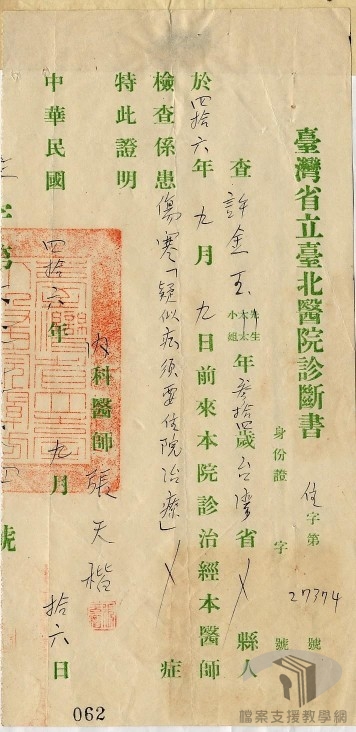 臺灣省立臺北醫院診斷書
住字第27374號
身份證 字 號
查許金玉先生太太小姐年叁拾四歲台灣省 縣人
於四拾六年九月九日前來本院診治經本醫師
檢查係患傷寒「疑似症須要住院治療」 症
特此證明
內科醫師 張天
中華民國四拾六年九月拾六日
字第 號
062
檔案支援教學網